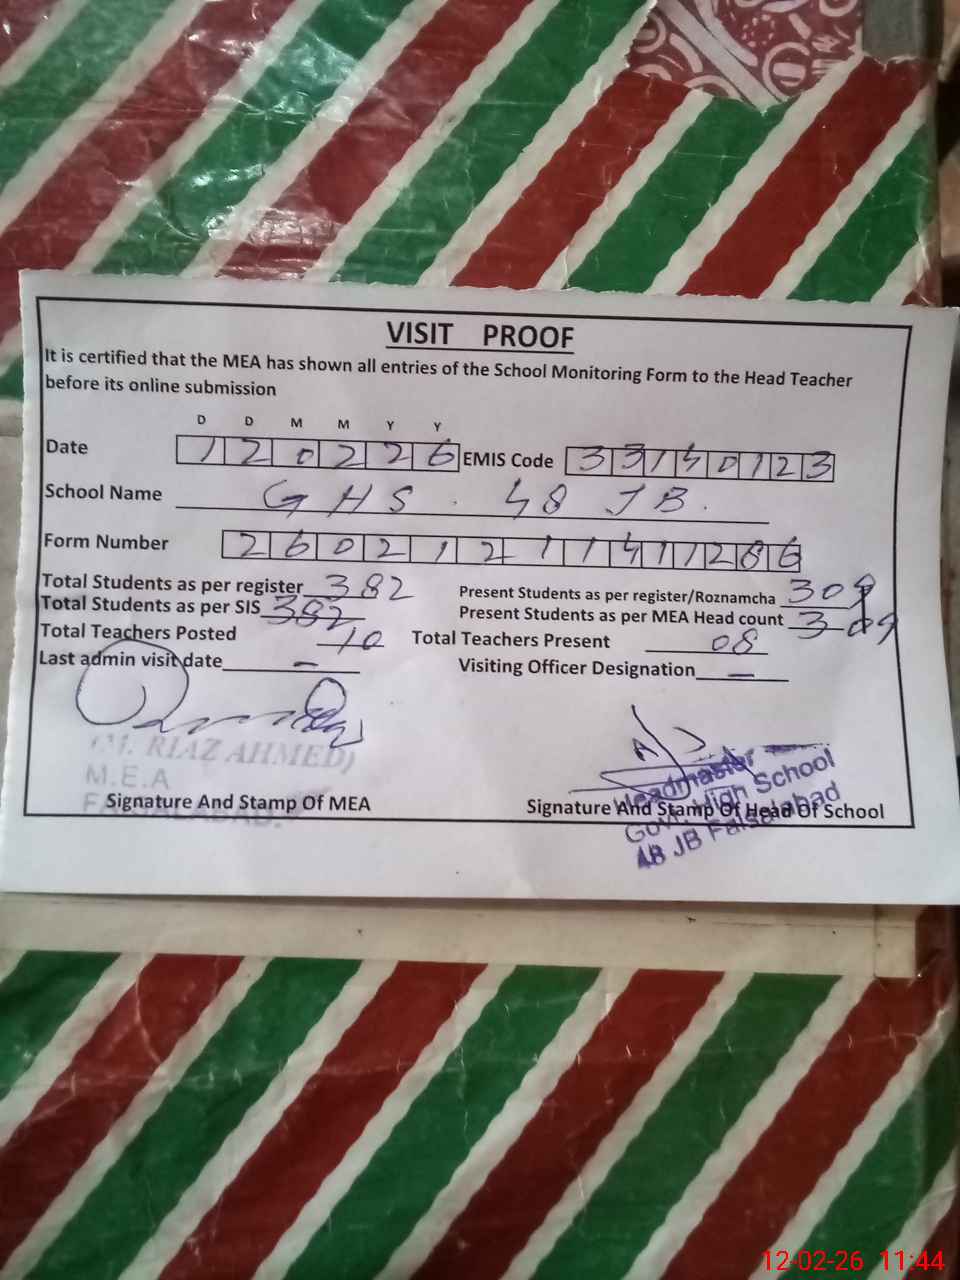 VISIT PROOF
It is certified that the MEA has shown all entries of the School Monitoring Form to the Head Teacher
before its online submission
D D M M Y Y
Date 120226 EMIS Code 33140123
School Name GHS. 48 JB.
Form Number 260212114 1286
Total Students as per register 382 Present Students as per register/Roznamcha 309
Total Students as per SIS 382 Present Students as per MEA Head count 309
Total Teachers Posted 10 Total Teachers Present 08
Last admin visit date — Visiting Officer Designation —
(M. RIAZ AHMED)
M.E.A
FAISALABAD.
Signature And Stamp Of MEA
Headmaster
Govt. High School
48 JB Faisalabad
Signature And Stamp Of Head Of School
12-02-26 11:44